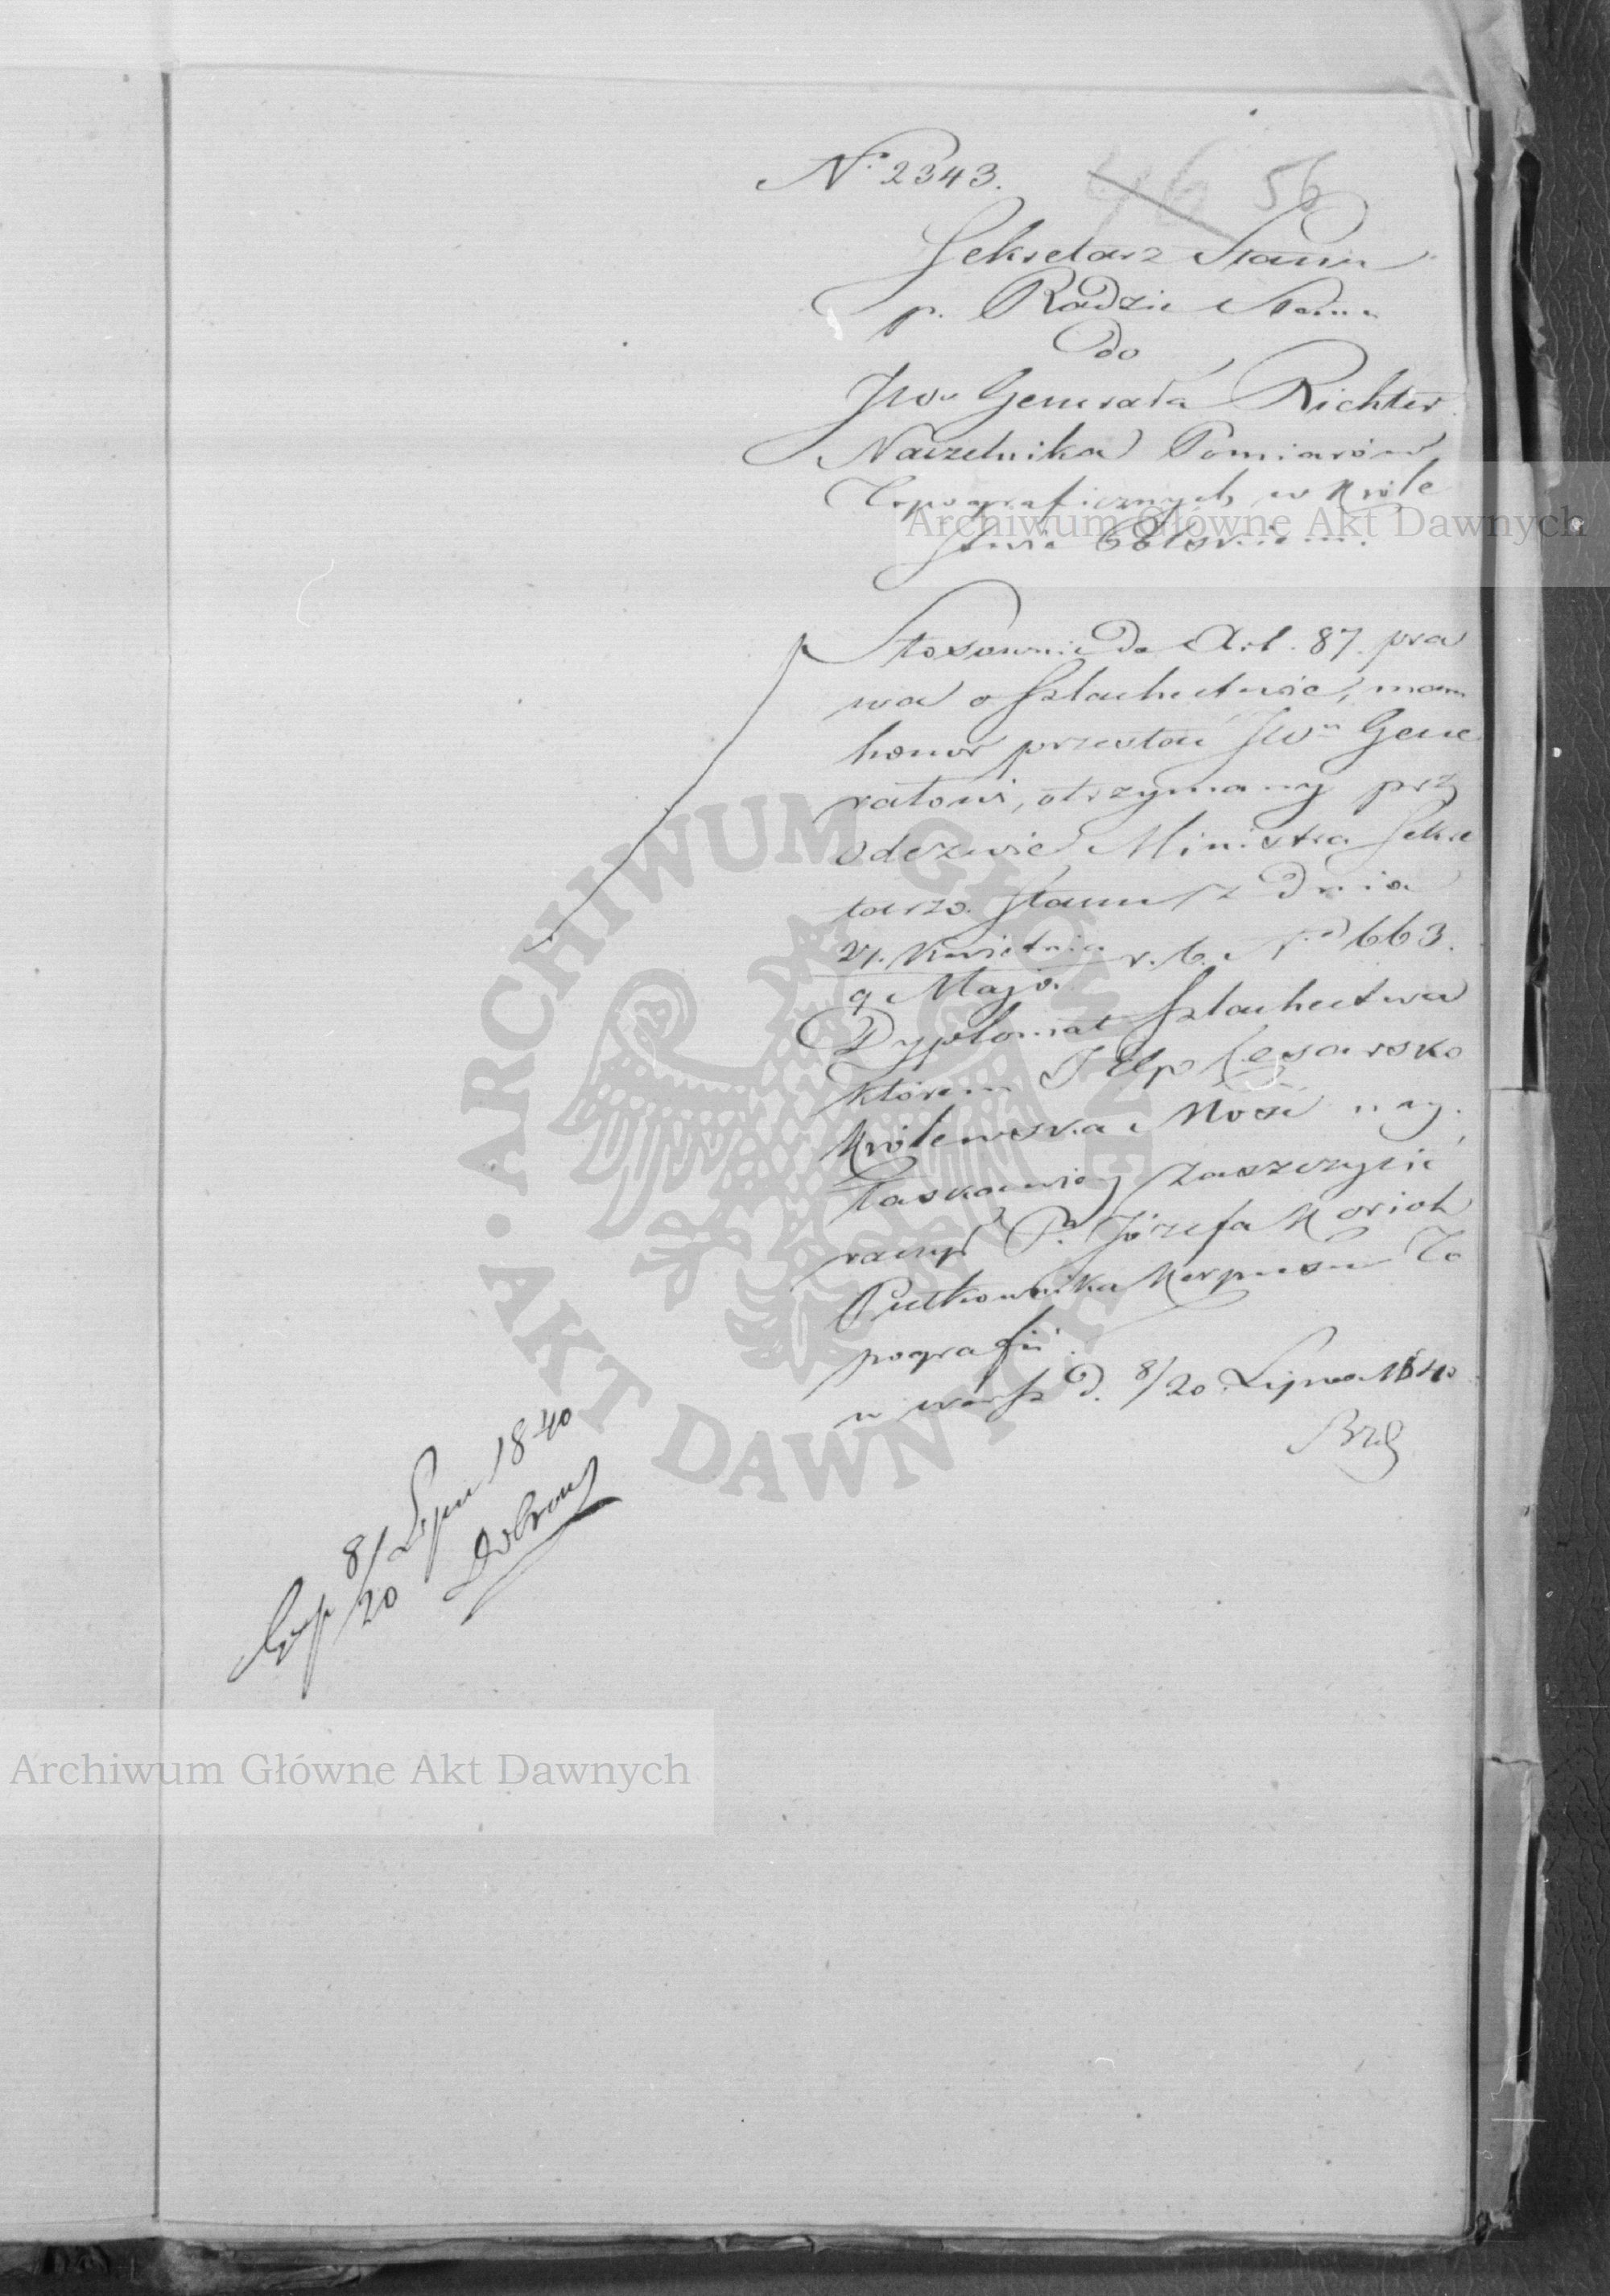 Nº 2343.
46 56
Sekretarz Stanu
p. Radzie Stanu
do
JWo Generała Richter
Naczelnika Pomiarów
Topograficznych w Króle
stwie Polskiem.
Stosownie do Art. 87. pra
wa o Szlachectwie, mam
honor przesłać JWmu Gene
rałowi, otrzymany przy
odezwie Ministra Sekre
tarza Stanu z dnia
27. Kwietnia
9 Maja r. b. Nro 663.
Dyplomat Szlachectwa
którem J Cesarsko
Królewska Mość nay.
łaskawiey zaszczycić
raczył Pa Józefa Koriot
Pułkownika Korpusu To
pografii.
w Warsz d. 8/20 Lipca 1840
Exp 8/20 Lipca 1840
Archiwum Główne Akt Dawnych
ARCHIWUM GŁÓWNE AKT DAWNYCH
Archiwum Główne Akt Dawnych